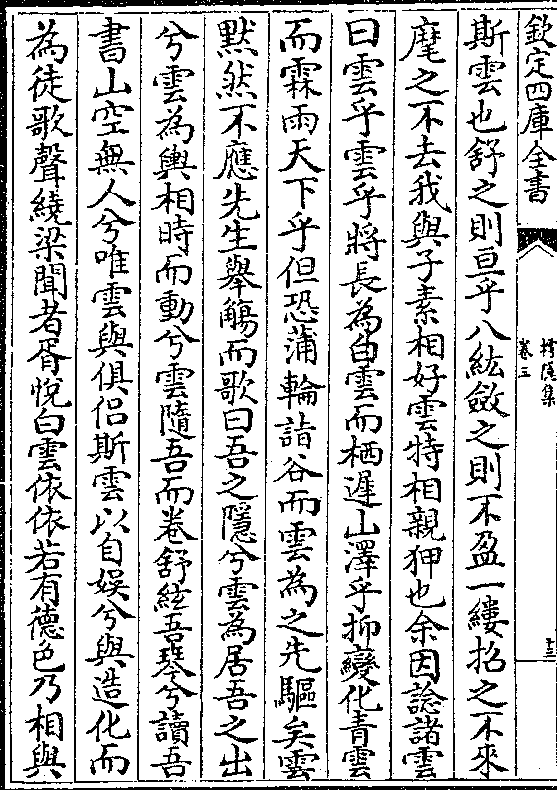 欽定四庫全書
樗隱集
卷三
斯雲也舒之則亘乎八紘斂之則不盈一縷招之不來
麾之不去我與子素相好雲特相親狎也余因諗諸雲
曰雲乎雲乎將長為白雲而栖遲山澤乎抑變化青雲
而霖雨天下乎但恐蒲輪詣谷而雲為之先驅矣雲
黙然不應先生舉觴而歌曰吾之隱兮雲為居吾之出
兮雲為輿相時而動兮雲隨吾而卷舒絃吾琴兮讀吾
書山空無人兮唯雲與俱侣斯雲以自娛兮與造化而
為徒歌聲繞梁聞者胥悅白雲依依若有德色乃相與